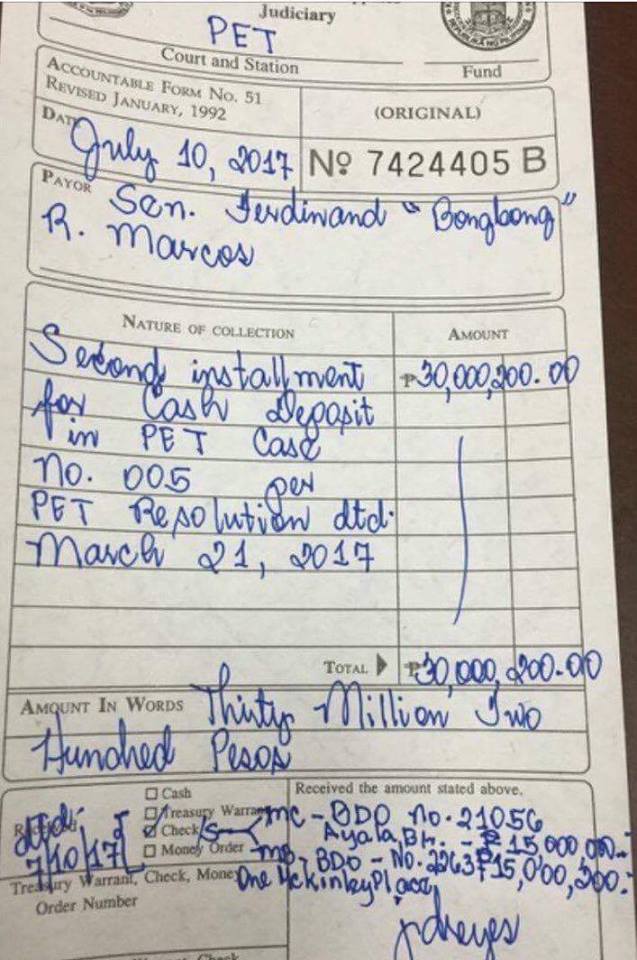 Judiciary
PET
Court and Station
Fund
ACCOUNTABLE FORM NO. 51
REVISED JANUARY, 1992
(ORIGINAL)
DATE
July 10, 2017
Nº 7424405 B
PAYOR
Sen. Ferdinand "Bongbong"
R. Marcos
NATURE OF COLLECTION
AMOUNT
Second installment
₱30,000,200.00
for Cash Deposit
in PET Case
No. 005 per
PET Resolution dtd.
March 21, 2017
TOTAL
₱30,000,200.00
AMOUNT IN WORDS
Thirty Million Two
Hundred Pesos
Received the amount stated above.
Cash
Treasury Warrant
Check/s
Money Order
dtd.
7/10/17
MC - BDO No. 21056
Ayala Br. - ₱15,000,000.-
MC - BDO - No.
₱15,000,200.-
One McKinley Place
Treasury Warrant, Check, Money
Order Number